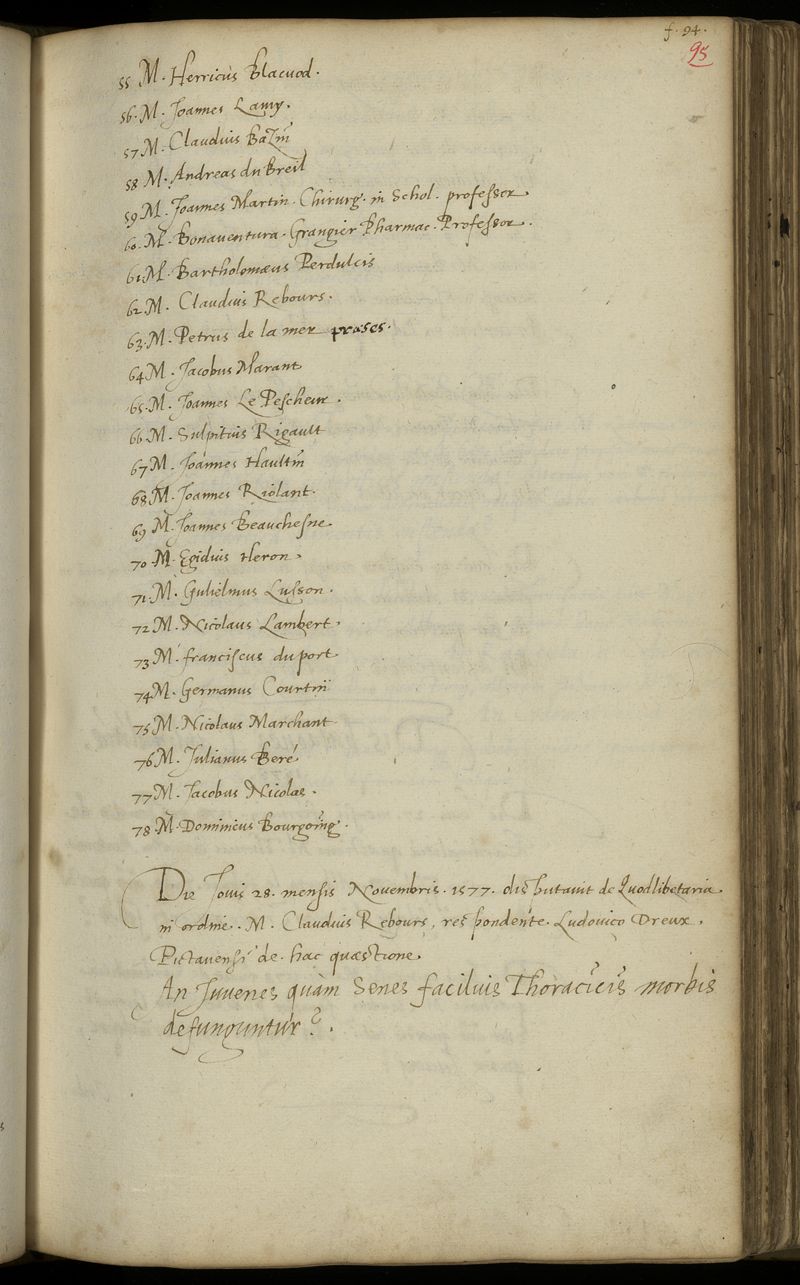 f. 94.
95
55 M. Herricus Blacuod.
56. M. Joannes Lamy.
57 M. Claudius Bazin
58 M. Andreas du Breil
59 M. Joannes Martin. Chirurg. in Schol. professor.
60. M. Bonaventura. Grangier Pharmac. Professor.
61 M. Bartholomæus Perdulcis
62 M. Claudius Rebours.
63. M. Petrus de la mer præses.
64 M. Jacobus Marant
65. M. Joannes Le Pescheur.
66 M. Sulpitius Rigault
67 M. Joannes Haultin
68 M. Joannes Riolant.
69 M. Joannes Beauchesne.
70 M. Egidius Heron.
71. M. Gulielmus Lusson.
72 M. Nicolaus Lambert.
73 M. franciscus duport
74 M. Germanus Courtin
75 M. Nicolaus Marchant
76 M. Julianus Beré
77 M. Jacobus Nicolae.
78 M. Dominicus Bourgoing.
Die Jouis 28. mensis Nouembris. 1577. disputauit de Quodlibetaria.
in ordine. M. Claudius Rebours, respondente. Ludouico Dreux.
Pictauensi de. hac quæstione.
An Juuenes quàm Senes facilius Thoracicis morbis
defunguntur?.